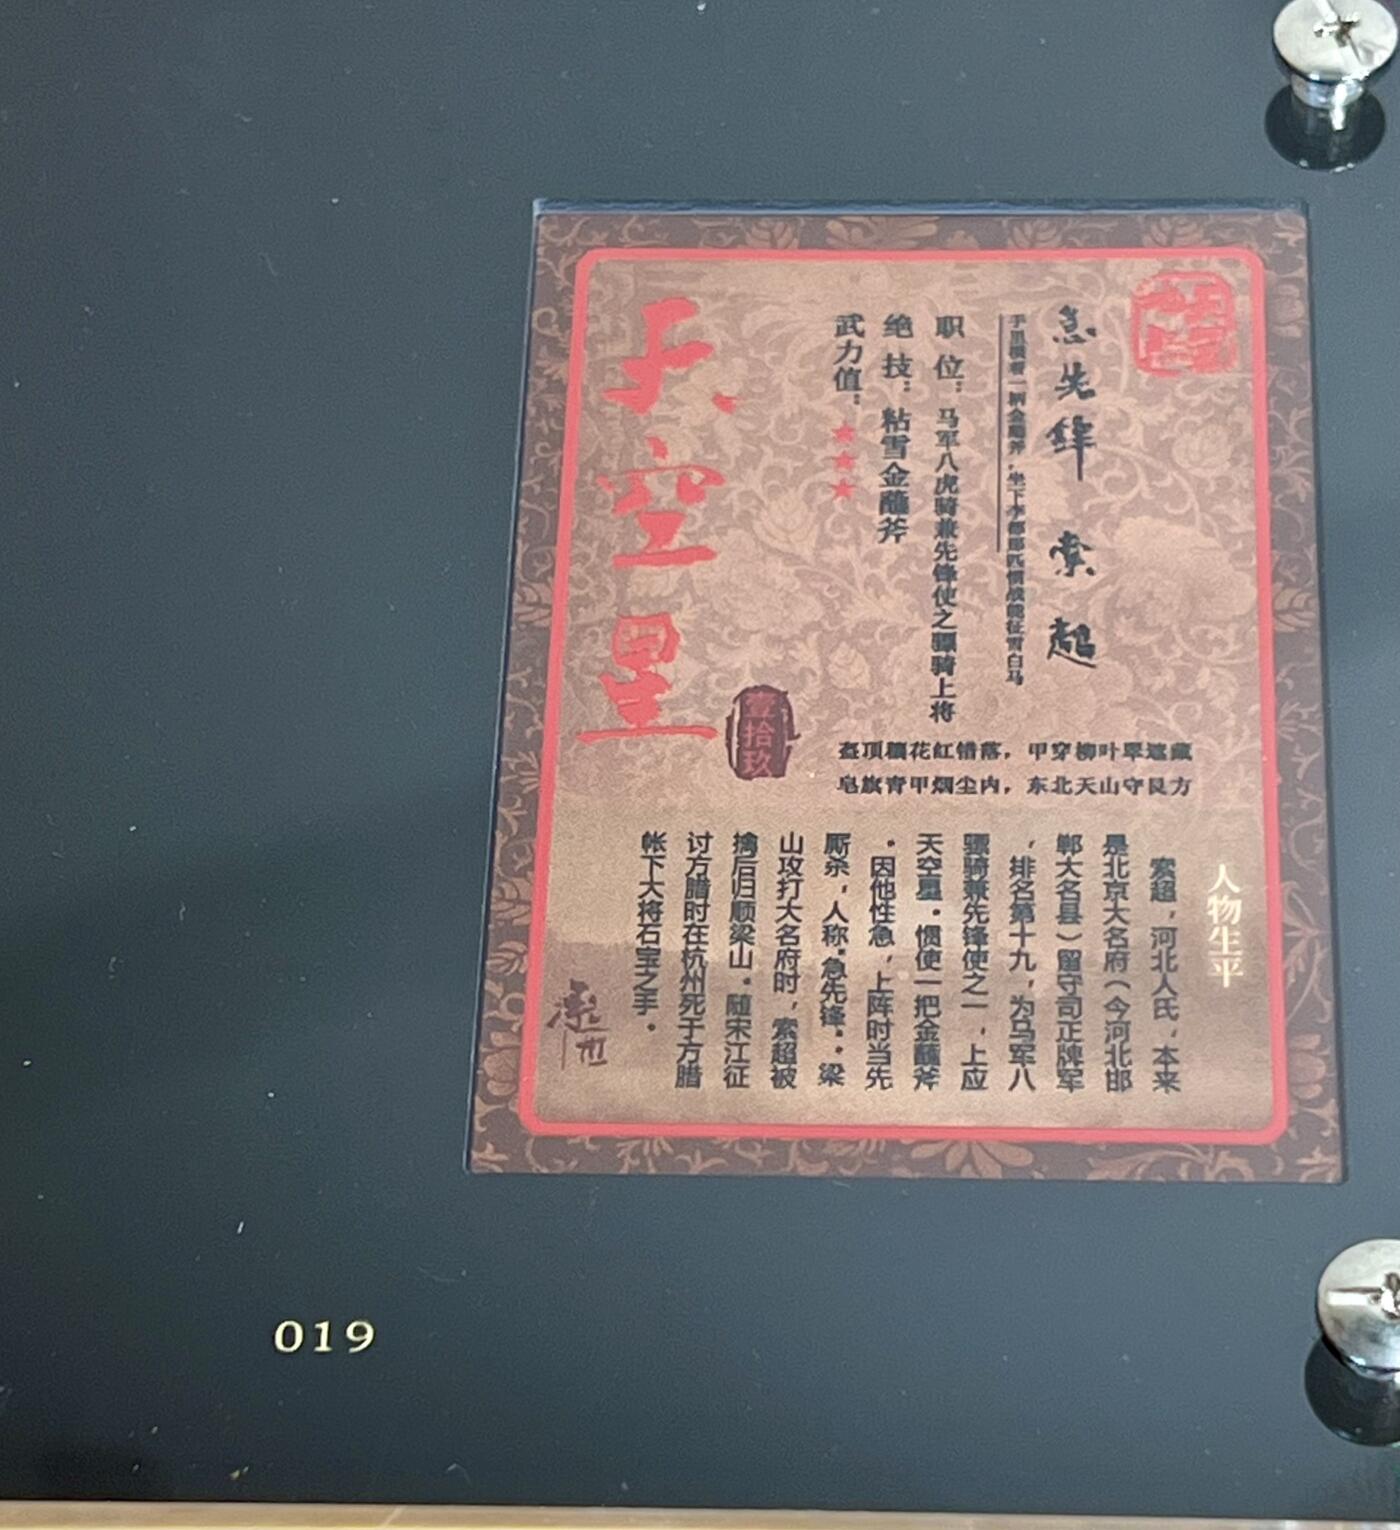 急先锋 索超
手里横着一柄金蘸斧，坐下李都监那匹惯战能征雪白马
职位：马军八虎骑兼先锋使之骠骑上将
绝技：粘雪金蘸斧
武力值：★★★
天空星
壹拾玖
盔顶穰花红错落，甲穿柳叶翠遮藏
皂旗青甲烟尘内，东北天山守艮方
人物生平
索超，河北人氏，本来
是北京大名府（今河北邯
郸大名县）留守司正牌军
，排名第十九，为马军八
骠骑兼先锋使之一，上应
天空星。惯使一把金蘸斧
。因他性急，上阵时当先
厮杀，人称“急先锋”。梁
山攻打大名府时，索超被
擒后归顺梁山。随宋江征
讨方腊时在杭州死于方腊
帐下大将石宝之手。
019